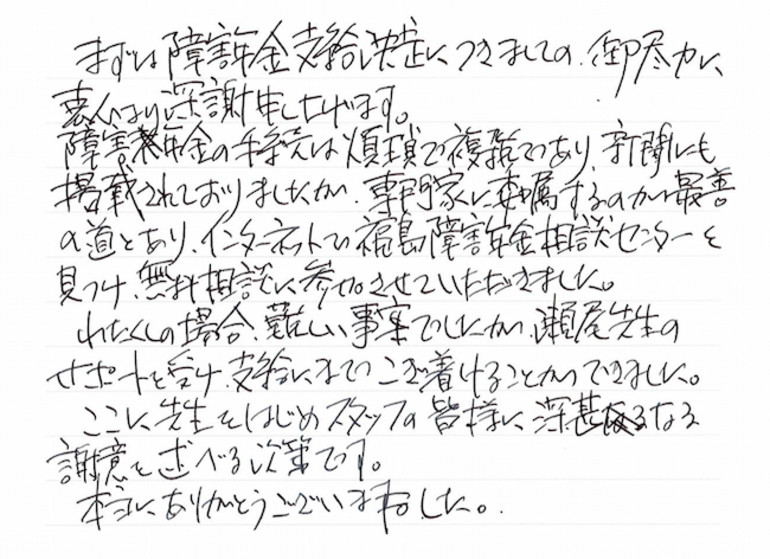 まずは障害年金支給決定につきましての、御尽力に、
衷心より深謝申し上げます。
障害年金の手続は煩瑣で複雑であり、新聞にも
掲載されておりましたが、専門家に委嘱するのが最善
の道とあり、インターネットで福島障害年金相談センターを
見つけ、無料相談に参加させていただきました。
わたくしの場合、難しい事案でしたが、瀬尾先生の
サポートを受け、支給にまでこぎ着けることができました。
ここに、先生をはじめスタッフの皆様に、深甚なる
謝意を述べる次第です。
本当に、ありがとうございました。